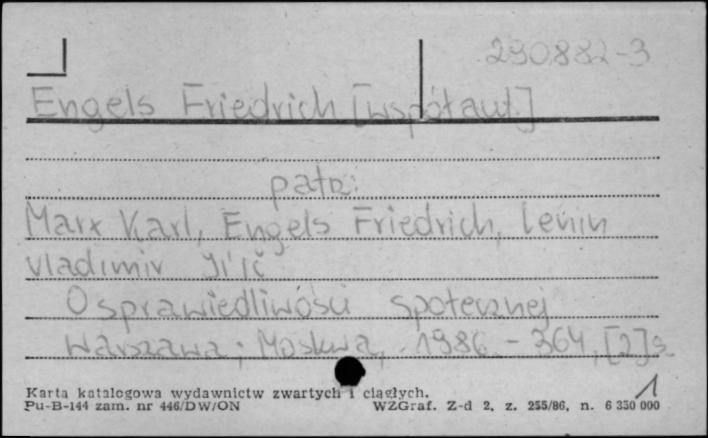 290882-3
Engels Friedrich [współaut.]
patrz:
Marx Karl, Engels Friedrich, Lenin
Vladimir Il'ič
O sprawiedliwości społecznej
Warszawa ; Moskwa, 1986. - 364, [2] s.
1
Karta katalogowa wydawnictw zwartych i ciągłych.
Pu-B-144 zam. nr 446/DW/ON WZGraf. Z-d 2, z. 255/86, n. 6 350 000